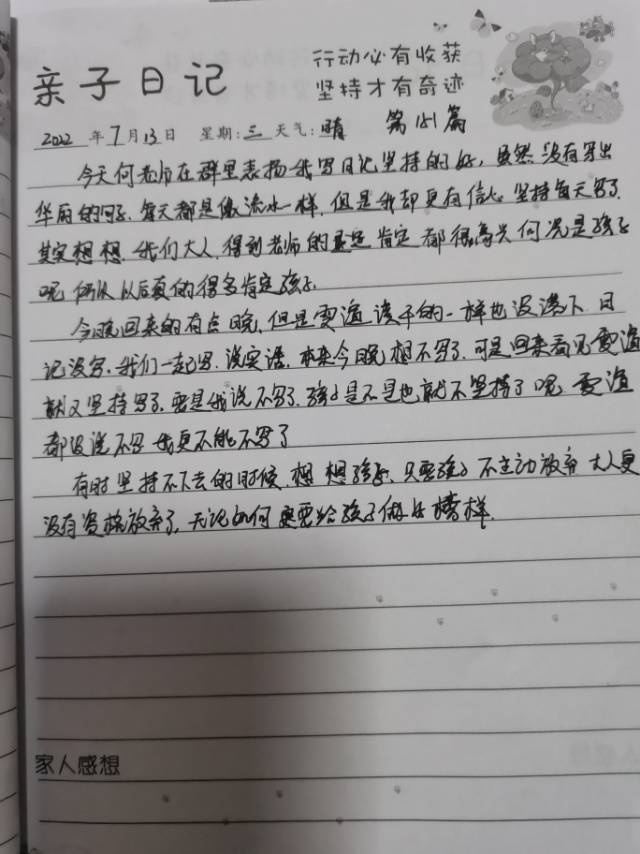 亲子日记
行动必有收获
坚持才有奇迹
2022 年 7 月 13 日 星期:三 天气:晴 第 151 篇
今天何老师在群里表扬我写日记坚持的好,虽然没有写出
华丽的句子,每天都是像流水一样,但是我却更有信心坚持每天写了
其实想想,我们大人,得到老师的肯定都很高兴何况是孩子
呢 所以以后真的得多肯定孩子.
今晚回来的有点晚,但是雯渲该干的一样也没落下 日
记没写,我们一起写,说实话,本来今晚想不写了,可是回来看见雯渲
就又坚持写了,要是我说不写了,孩子是不是也就不坚持了呢 雯渲
都没说不写 我更不能不写了
有时坚持不下去的时候,想想孩子,只要孩子不主动放弃 大人更
没有资格放弃了,无论如何更要给孩子做好榜样.
家人感想